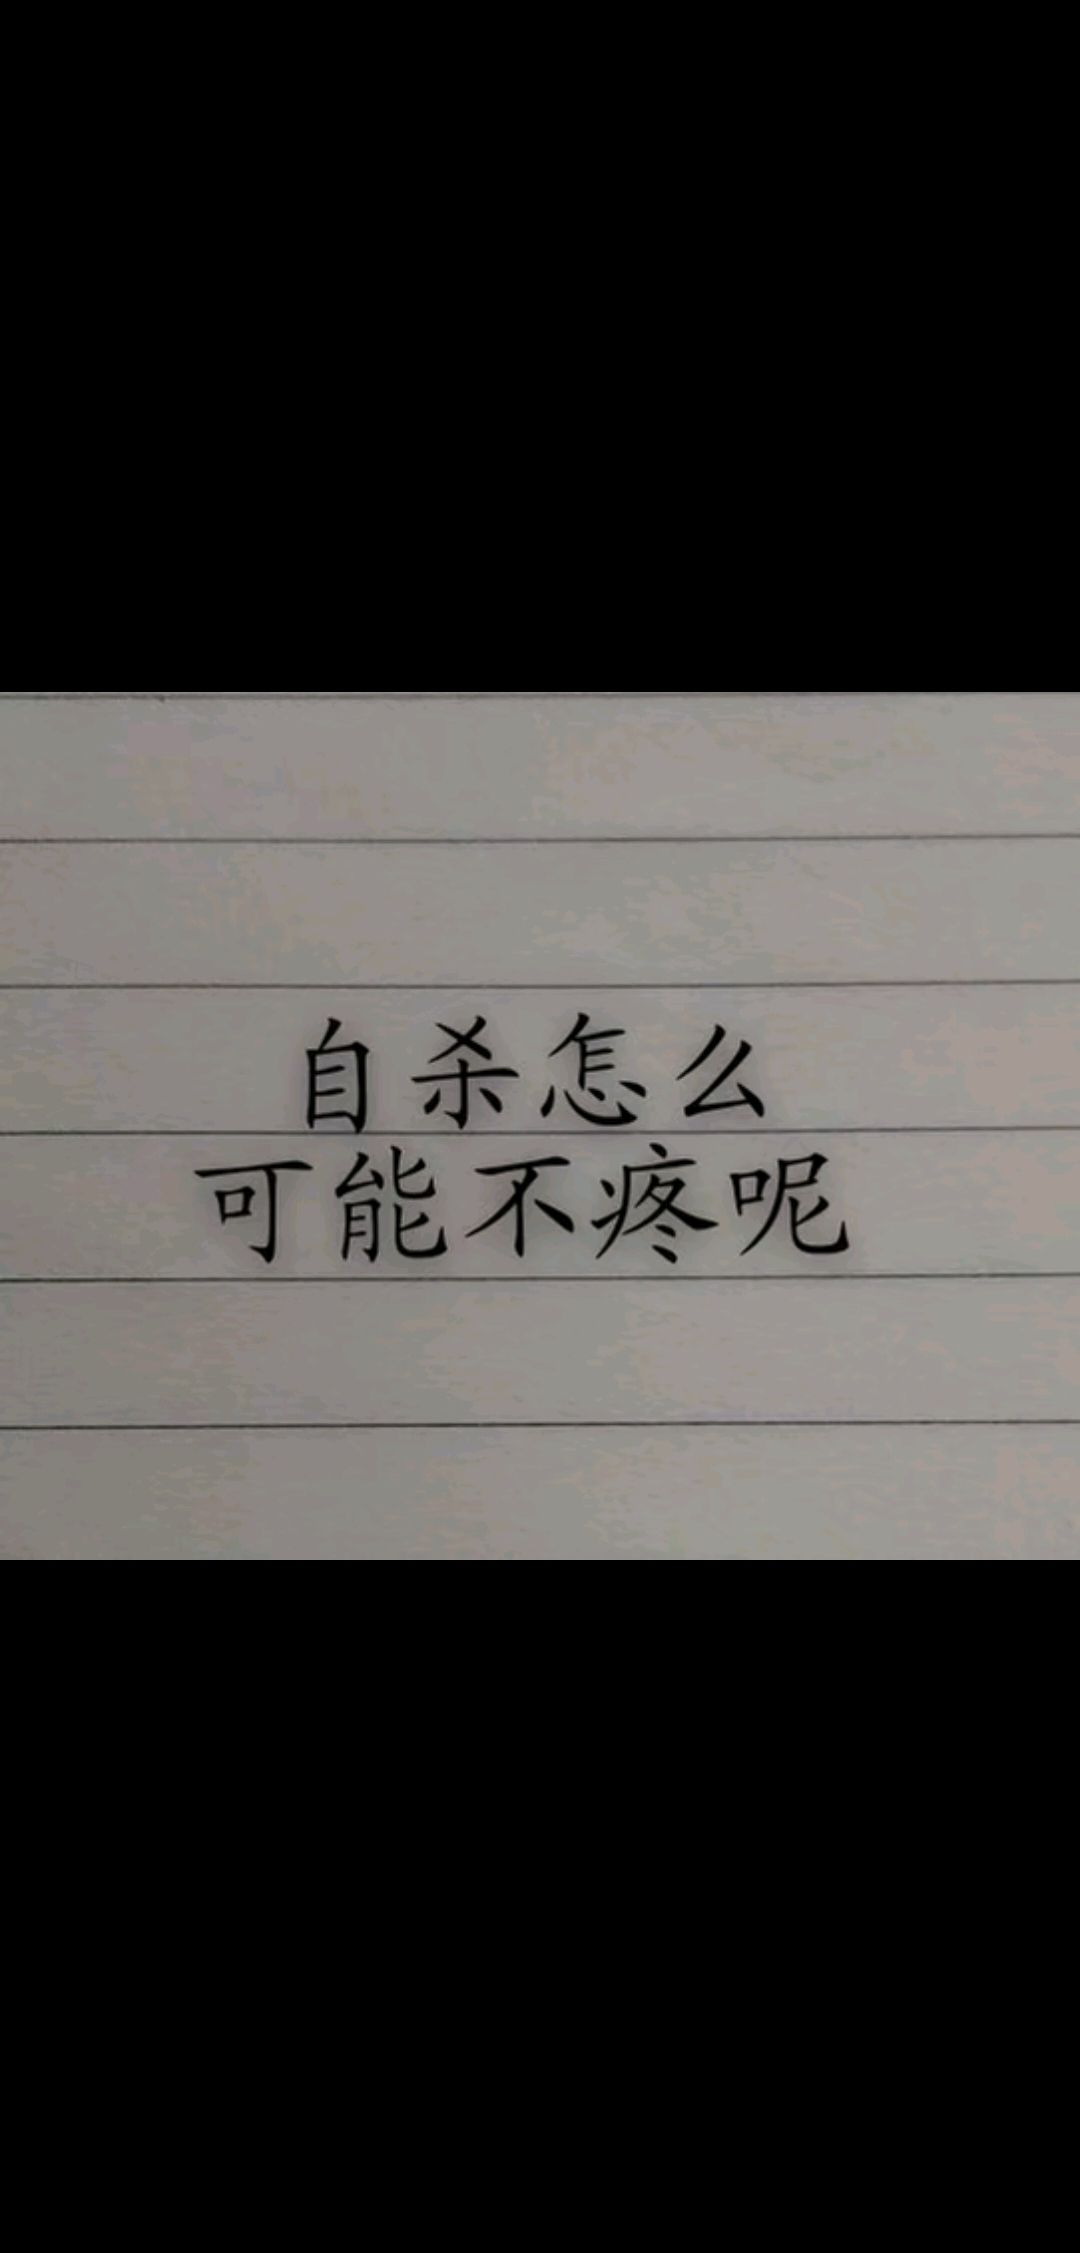 自杀怎么
可能不疼呢